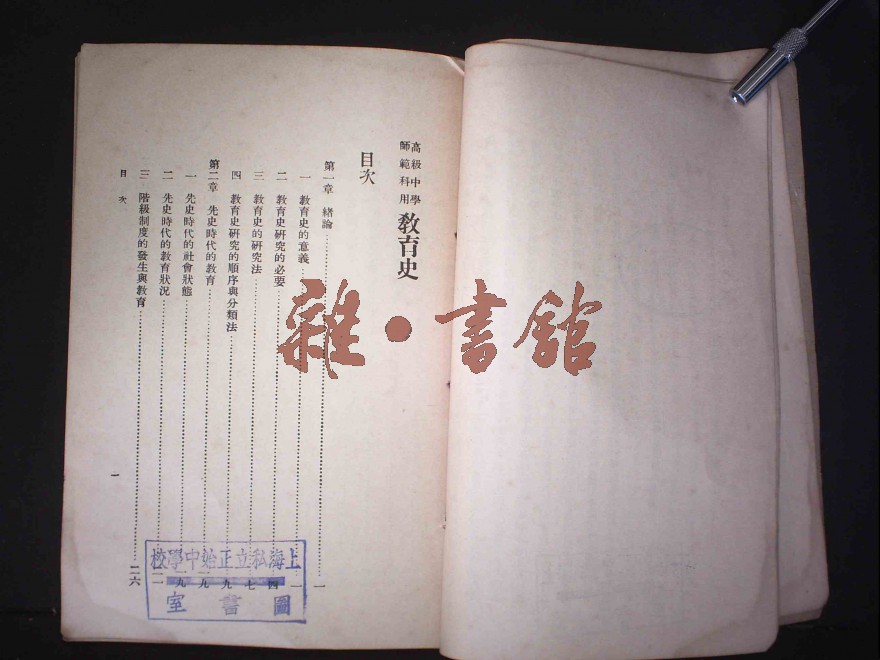 高級中學
師範科用
教育史
目次
第一章 緒論……一
一 教育史的意義……一
二 教育史研究的必要……四
三 教育史的研究法……七
四 教育史研究的順序與分類法……九
第二章 先史時代的教育……一九
一 先史時代的社會狀態……一九
二 先史時代的教育狀況
三 階級制度的發生與教育……二六
目次
一
上海私立正始中學校
圖書室
雜·書館